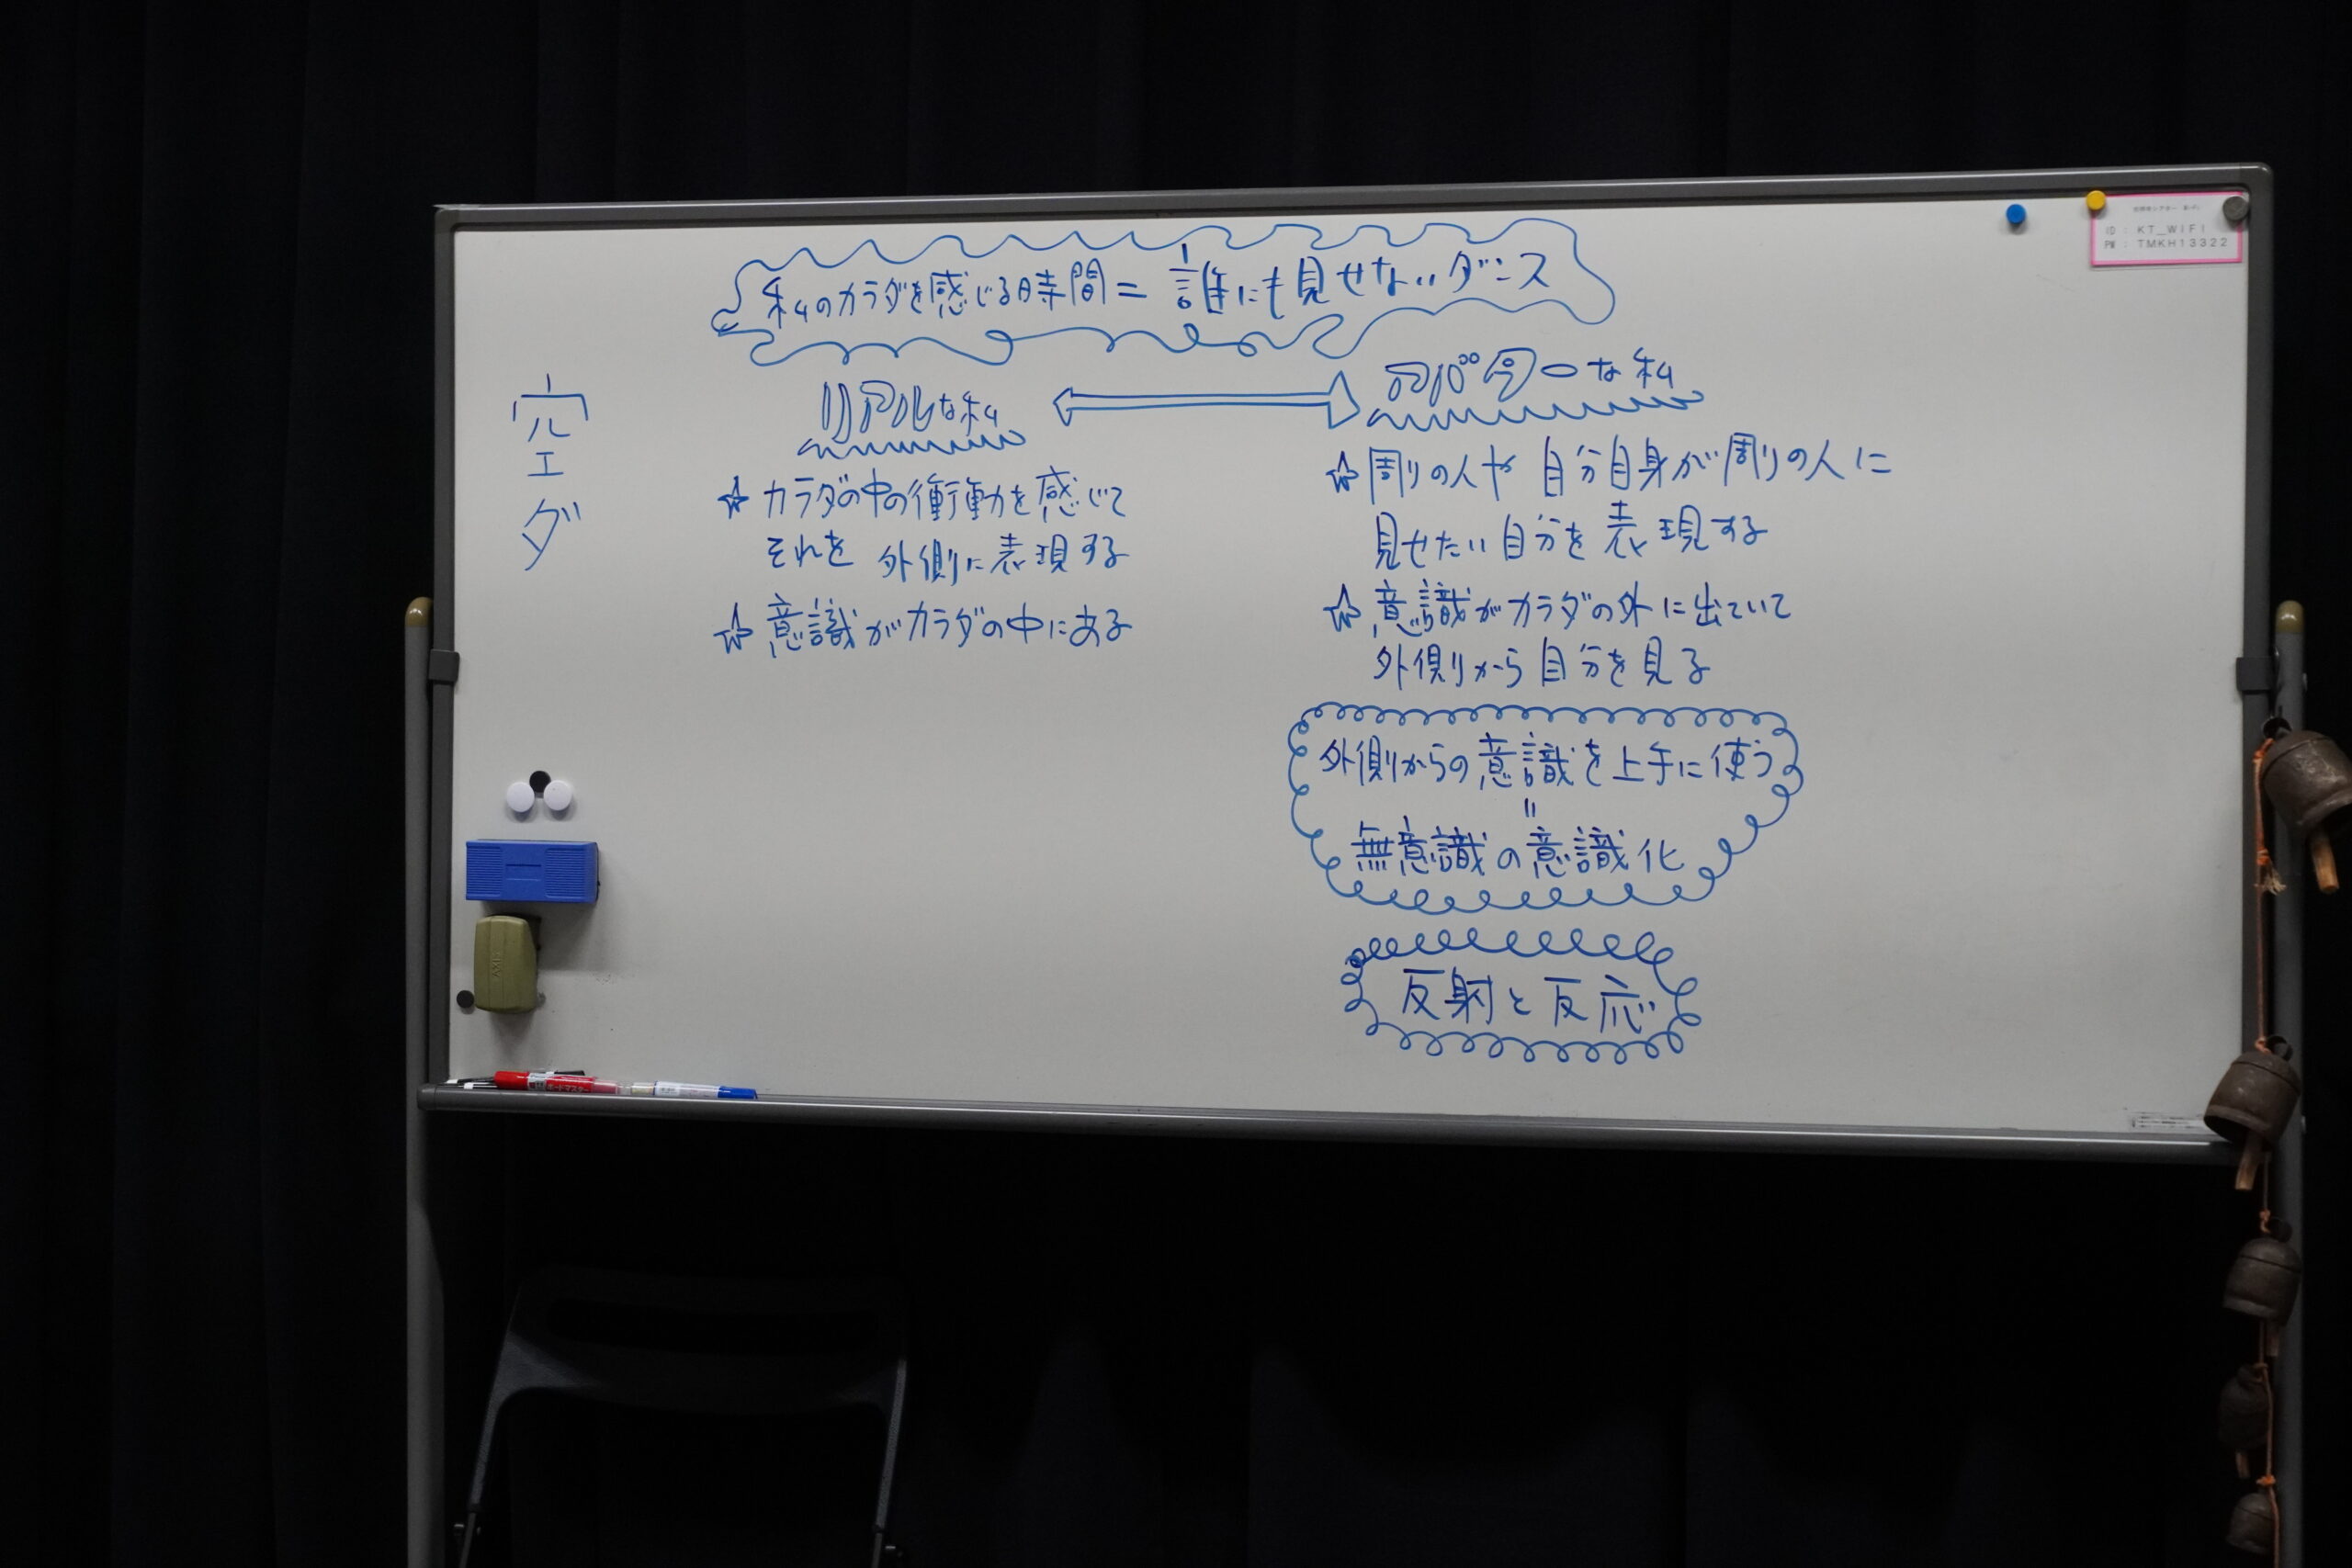 私のカラダを感じる時間 = 誰にも見せないダンス
空ダ
リアルな私
☆カラダの中の衝動を感じて
それを 外側に表現する
☆意識がカラダの中にある
アバターな私
☆周りの人や 自分自身が周りの人に
見せたい自分を表現する
☆意識がカラダの外に出ていて
外側から自分を見る
外側からの意識を上手に使う
=
無意識の意識化
反射と反応
ID : KT_WIFI
PW : TMKH13322